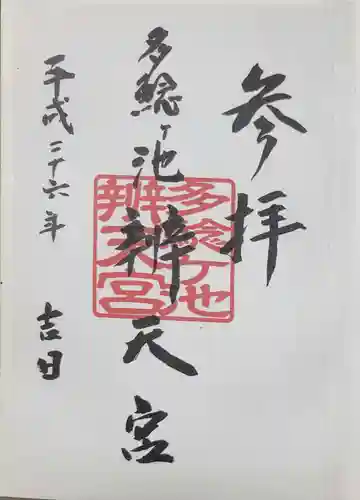 参拝
多鯰ヶ池辨天宮
平成二十六年 吉日
多鯰ケ池
辨天宮